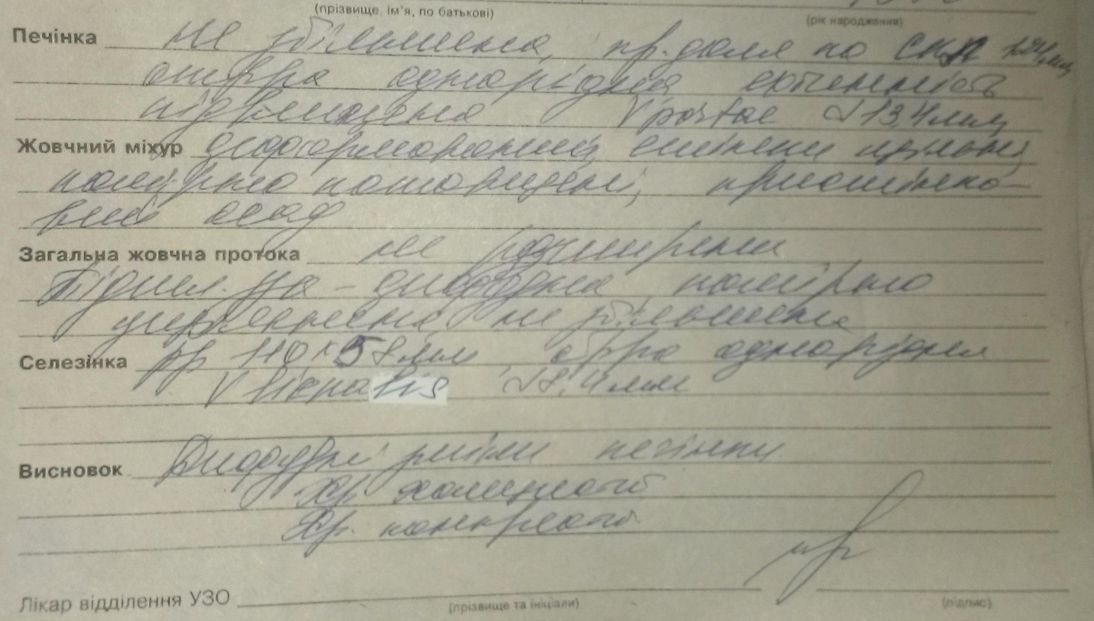 (прізвище, ім'я, по батькові)
(рік народження)
Печінка не збільшена, пр. доля по СКЛ
структура однорідна ехогенність
підвищена V portae d 13,4 мм
Жовчний міхур стінки
помірно потовщені, пристінко-
вий осад
Загальна жовчна протока не розширена
Підшл. з-за - дифузна, помірно
ущільнена не збільшена
Селезінка рр 110 х 58 мм однорідна
V lienalis d 8,4 мм
Висновок Дифузні зміни печінки
Хр. холецистит
Хр. панкреатит
Лікар відділення УЗО
(прізвище та ініціали)
(підпис)